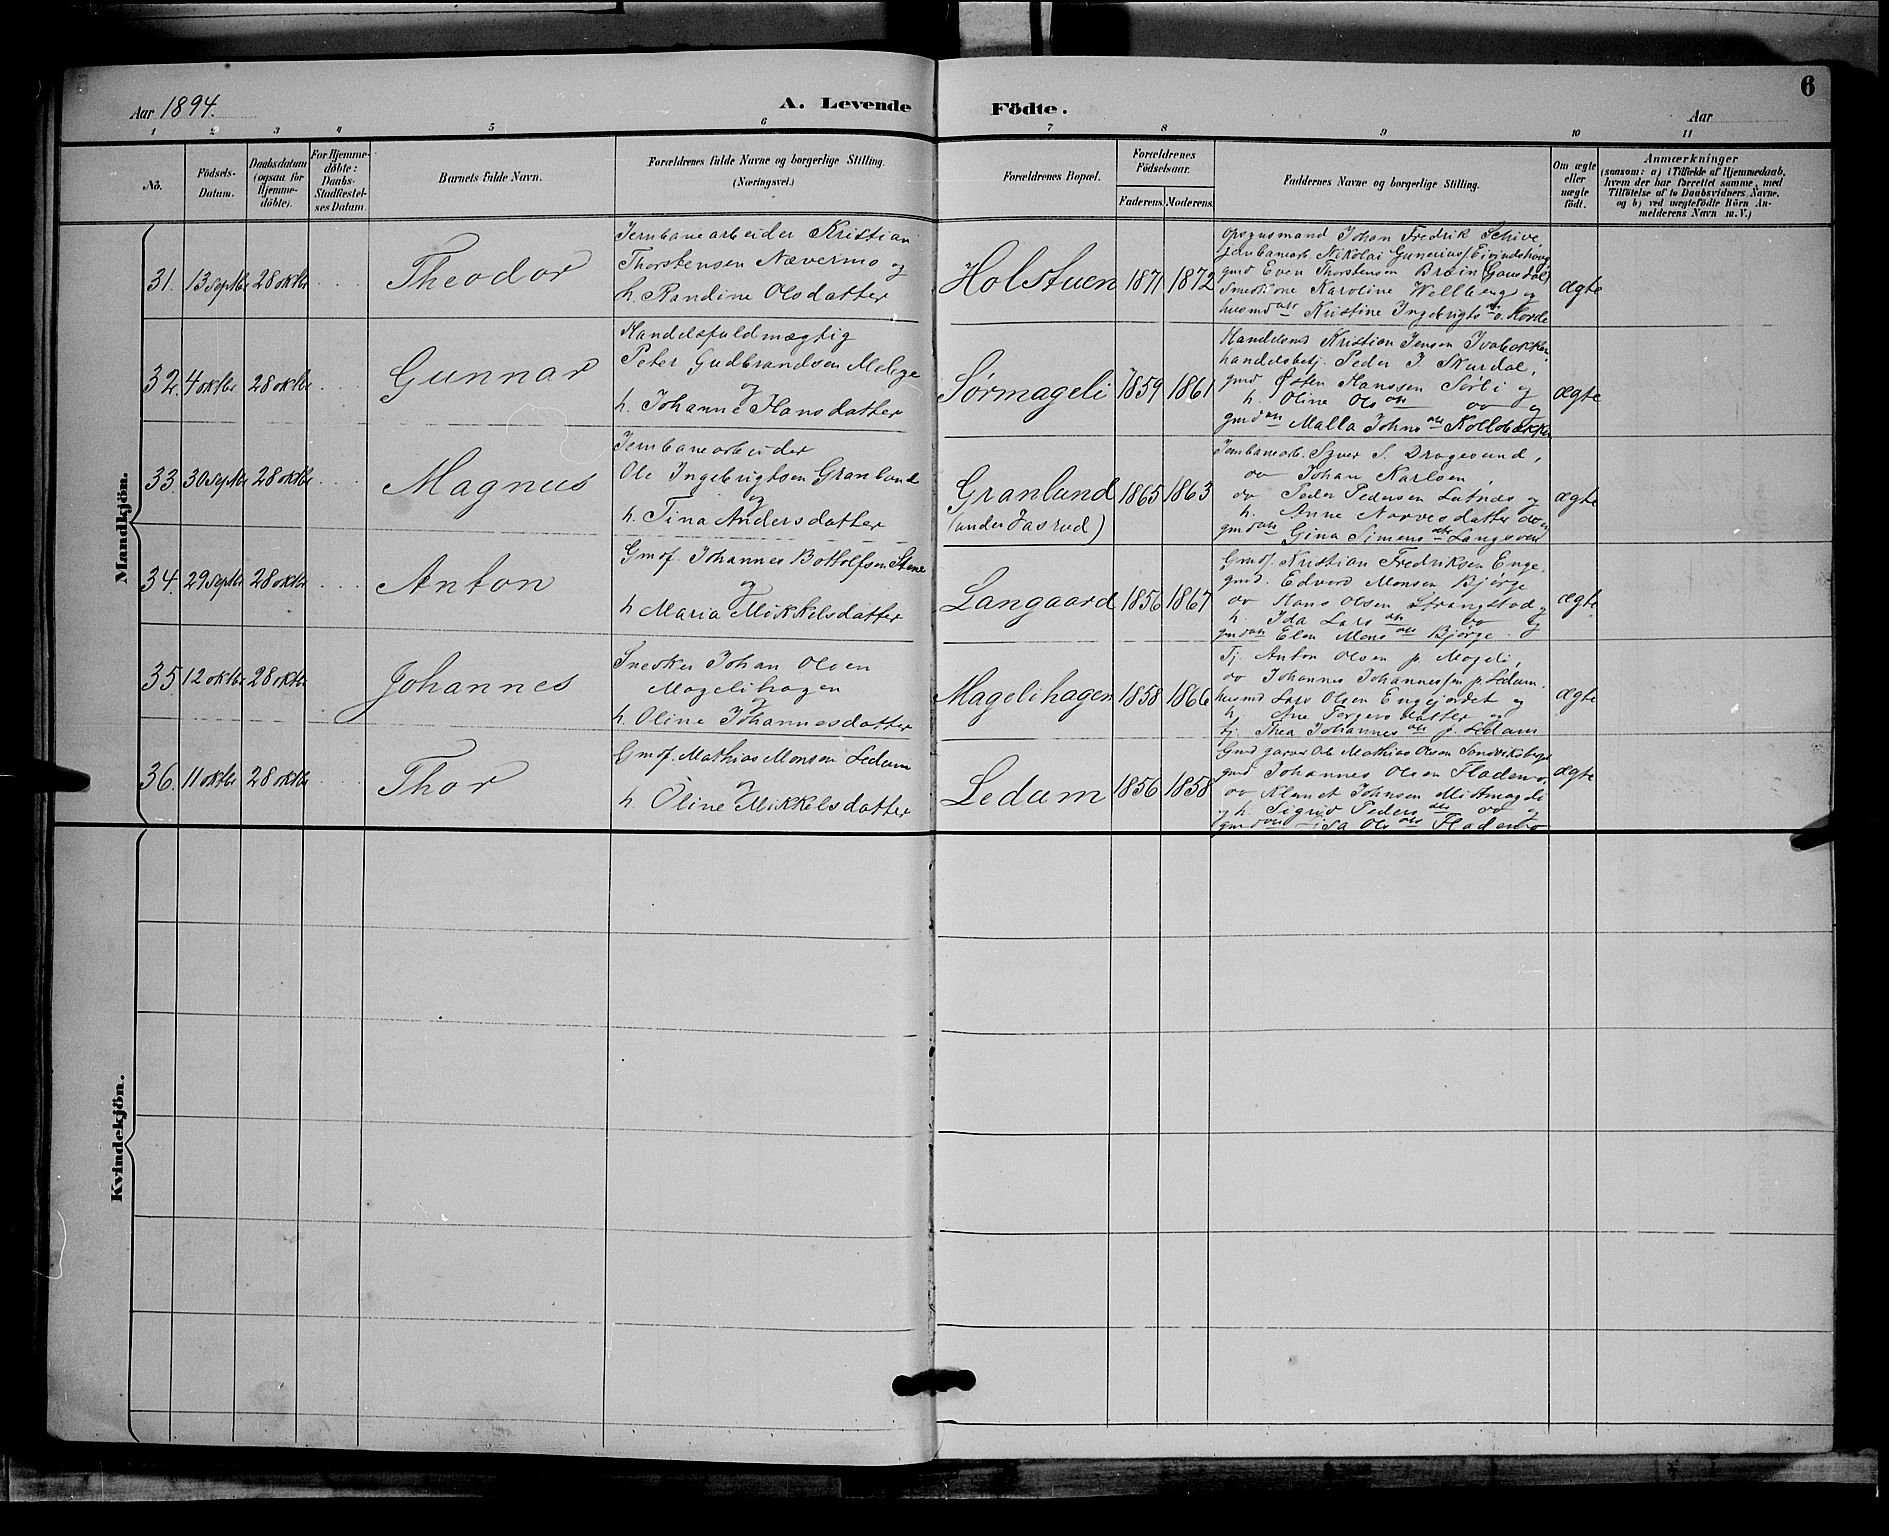 6
Aar 1894.
A. Levende Födte.
Aar
1 2 3 4 5 6 7 8 9 10 11
Nö.
Födsels-
Datum.
Daabsdatum
(ogsaa for
Hjemme-
döbte).
For Hjemme-
döbte:
Daabs-
Stadfæstel-
ses Datum
Barnets fulde Navn.
Forældrenes fulde Navne og borgerlige Stilling.
(Næringsvei.)
Forældrenes Bopæl.
Forældrenes
Födselsaar.
Faderens.
Moderens.
Faddernes Navne og borgerlige Stilling.
Om ægte
eller
uægte
födt.
Anmærkninger
(saasom: a) i Tilfælde af Hjemmedaab,
hvem der har forrettet samme, med
Tilföielse af to Daabsvidners Navne.
og b) ved uægtefödte Börn An-
melderens Navn m. V.)
Mandkjön.
31. 13 septbr 28 oktbr
Theodor
Jernbanearbeider Kristian
Thorstensen Nævermo og
h. Randine Olsdatter
Holstuen 1871 1872
Johan Fredrik Schive,
Jernbanearb. Nikolai Gunerius
gmd Even Thorstensen
Karoline Wellberg og
Kristine Ingebrigts
ægte
32. 4 oktbr 28 oktbr
Gunnar
Handelsfuldmægtig
Peter Gudbrandsen
og
h. Johanne Hansdatter
Sørmageli 1859 1861
Handelsmd Kristian Jensen
handelsbetj. Peder J. Skurdal,
gmd Østen Hanssen Sørli og
h. Oline Ols do og
Malla Johns
ægte
33. 30 septbr 28 oktbr
Magnus
Jernbanearbeider
Ole Ingebrigtsen Granlund
og
h. Tina Andersdatter
Granlund
(under Jasrud)
1865 1863
Jernbanearb. Syver S.
do Johan Karlsen,
do Peder Pedersen Lutnæs og
h. Anne
Gina Simens
ægte
34. 29 septbr 28 oktbr
Anton
Gmdf. Johannes Botholfsen Stene
og
h. Maria Mikkelsdatter
Langaard 1856 1867
Gmdf. Kristian Fredriksen Enge,
gmd. Edvard Monsen Bjørge
do Hans Olsen
h. Ida Lars do og
Elen Mons Bjørge
ægte
35. 12 oktbr 28 oktbr
Johannes
Snedker Johan Olsen
Magelihagen
og
h. Oline Johannesdatter
Magelihagen 1858 1866
Tj. Anton Olsen p. Mageli,
do Johannes Johannessen p. Ledum,
husmd Lars Olsen Engejordet og
h. Ane datter og
tj. Thea Johannes p. Ledum
ægte
36. 11 oktbr 28 oktbr
Thor
Gmdf. Mathias Monsen Ledum
og
h. Oline Mikkelsdatter
Ledum 1856 1858
Ole Mathias Olsen
gmd Johannes Olsen Flademo,
do Johnsen
og h. Sigrid Peders do og
Ols Flademo
ægte
Kvindekjön.